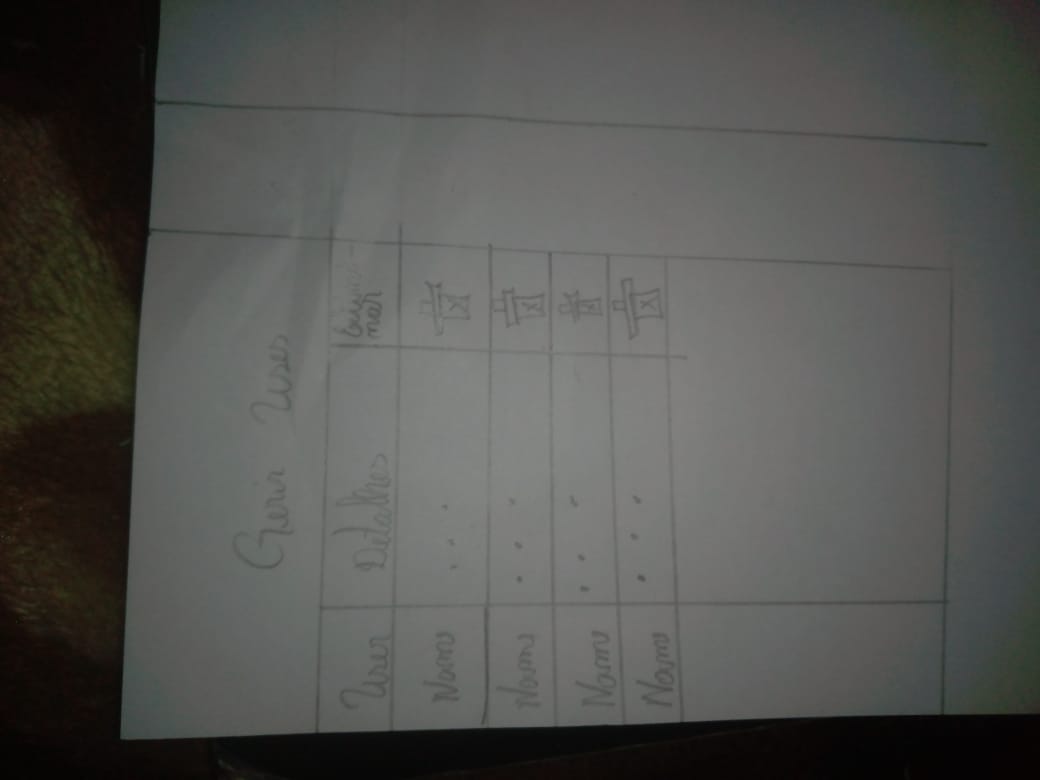 Gerir Uses
User Detalhes
Nome
Nome
Nome
Nome